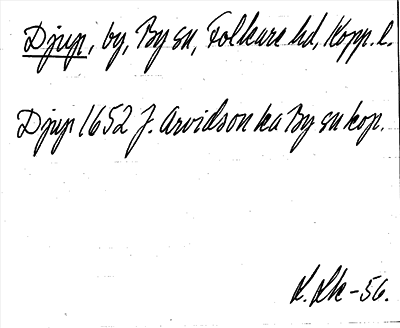 Djup, by, By sn, Folkare hd, Kopp. l.
Djup 1652 J. Arvidson ka By sn kop.
K. Lk -56.